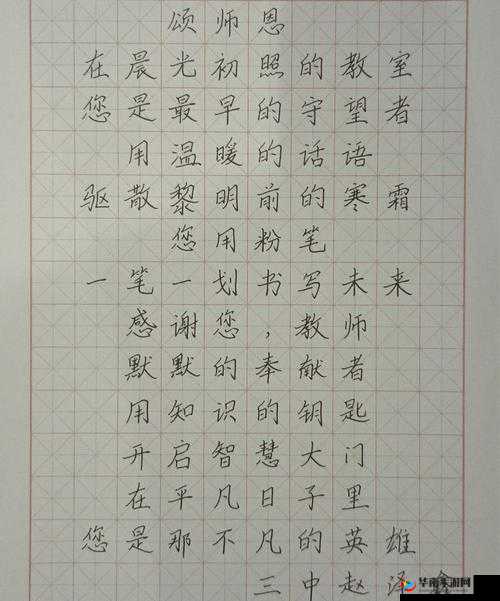 颂师恩
在晨光初照的教室
您是最早的守望者
用温暖的话语
驱散黎明前的寒霜
您用粉笔
一笔一划书写未来
感谢您，教师
默默的奉献者
用知识的钥匙
开启智慧大门
在平凡日子里
您是那不凡的英雄
三中赵泽
华南手游网